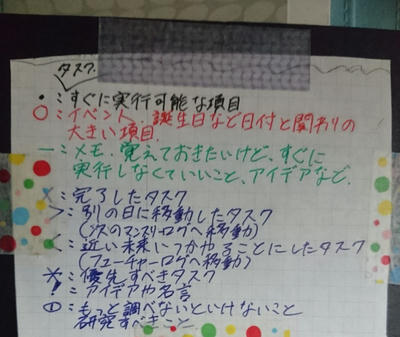 タスク
・:すぐに実行可能な項目
○:イベント、誕生日など日付と関わりの
大きい項目
ー:メモ、覚えておきたいけど、すぐに
実行しなくていいこと、アイデアなど.
×:完了したタスク
>:別の日に移動したタスク
(次のマンスリーログへ移動)
<:近い未来いつかやることにしたタスク
(フューチャーログへ移動)
*:優先すべきタスク
!:アイデアや名言
:もっと調べないといけないこと
研究すべきこと